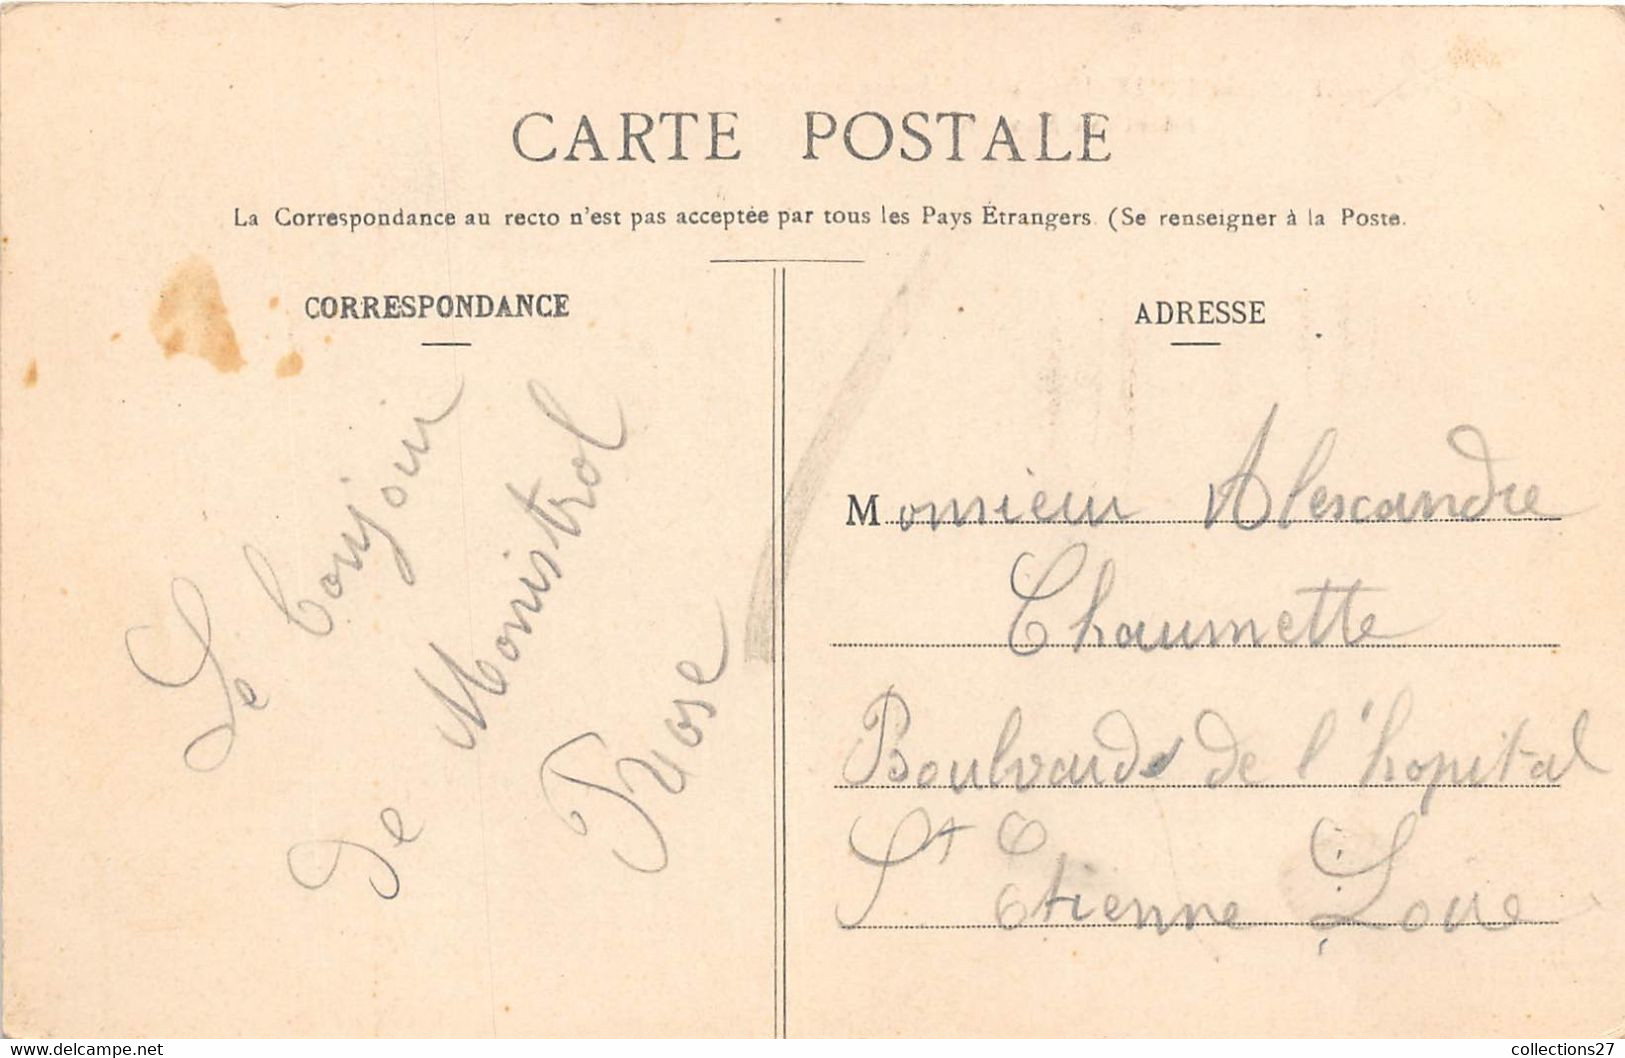 CARTE POSTALE
La Correspondance au recto n'est pas acceptée par tous les Pays Étrangers. (Se renseigner à la Poste.
CORRESPONDANCE
Le bonjour
de Monistrol
Rose
ADRESSE
Monsieur Alexcandre
Chaumette
Boulvard de l'hopital
St Etienne Loire
www.delcampe.net
collections27